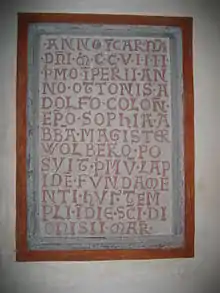 ANNO ICARNA
DNI M CCVIIII
PMO IPERII AN
NO OTTONIS A
DOLFO COLON
EPO SOPHIA A
BBA MAGISTER
WOLBERO PO
SVIT PMV LAP
IDE FVNDAME
NTI HVI TEM
PLI IDIE SCI DI
ONISII MAR